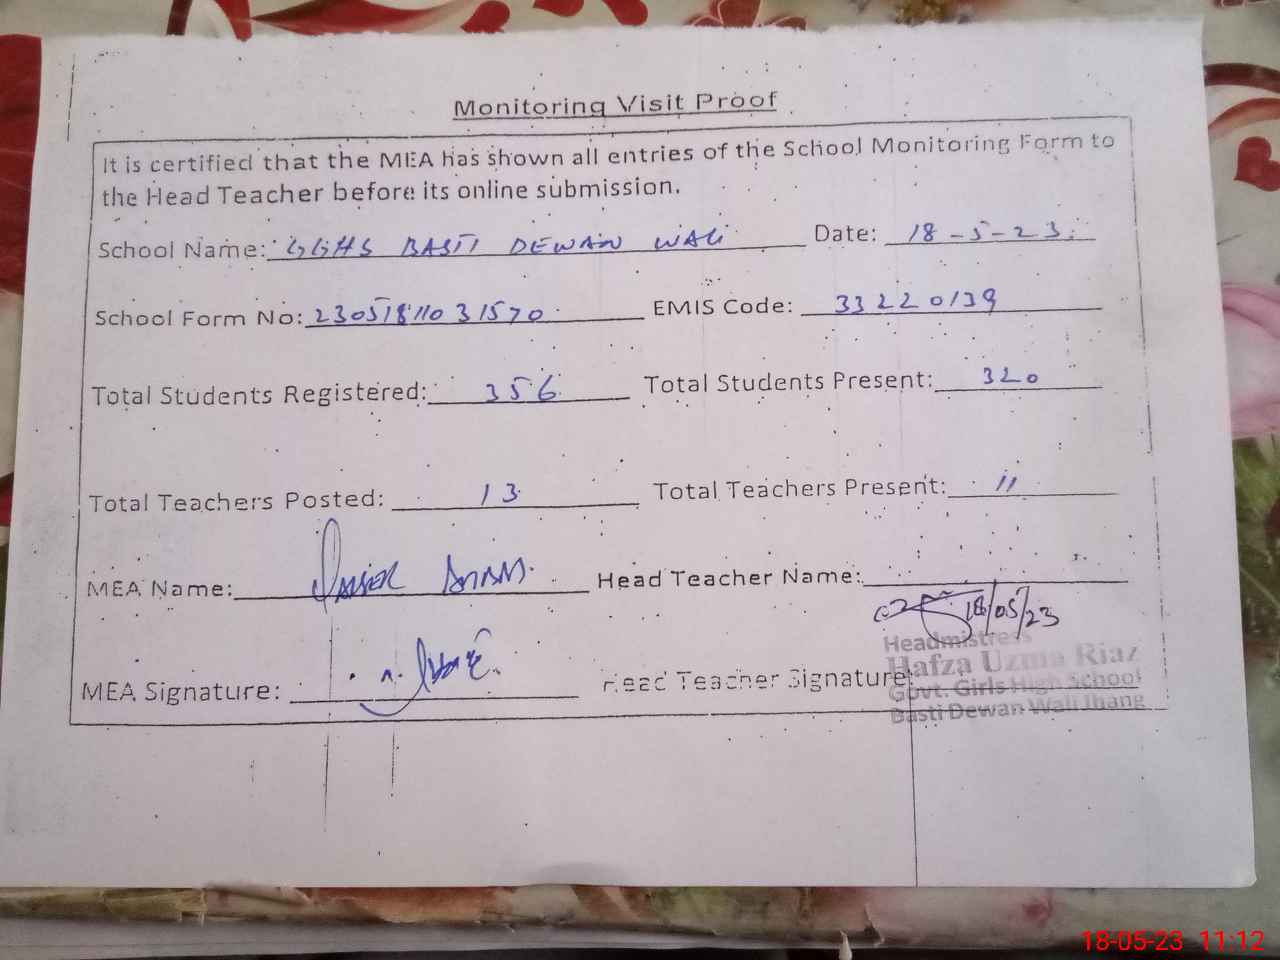 Monitoring Visit Proof
It is certified that the MEA has shown all entries of the School Monitoring Form to
the Head Teacher before its online submission.
School Name: GGHS BASTI DEWAN WALI Date: 18-5-23
School Form No: 23051811031570 EMIS Code: 33220139
Total Students Registered: 356 Total Students Present: 320
Total Teachers Posted: 13 Total Teachers Present: 11
MEA Name: Head Teacher Name:
18/05/23
MEA Signature: Head Teacher Signature:
Headmistress
Hafza Uzma Riaz
Govt. Girls High School
Basti Dewan Wali Jhang
18-05-23 11:12